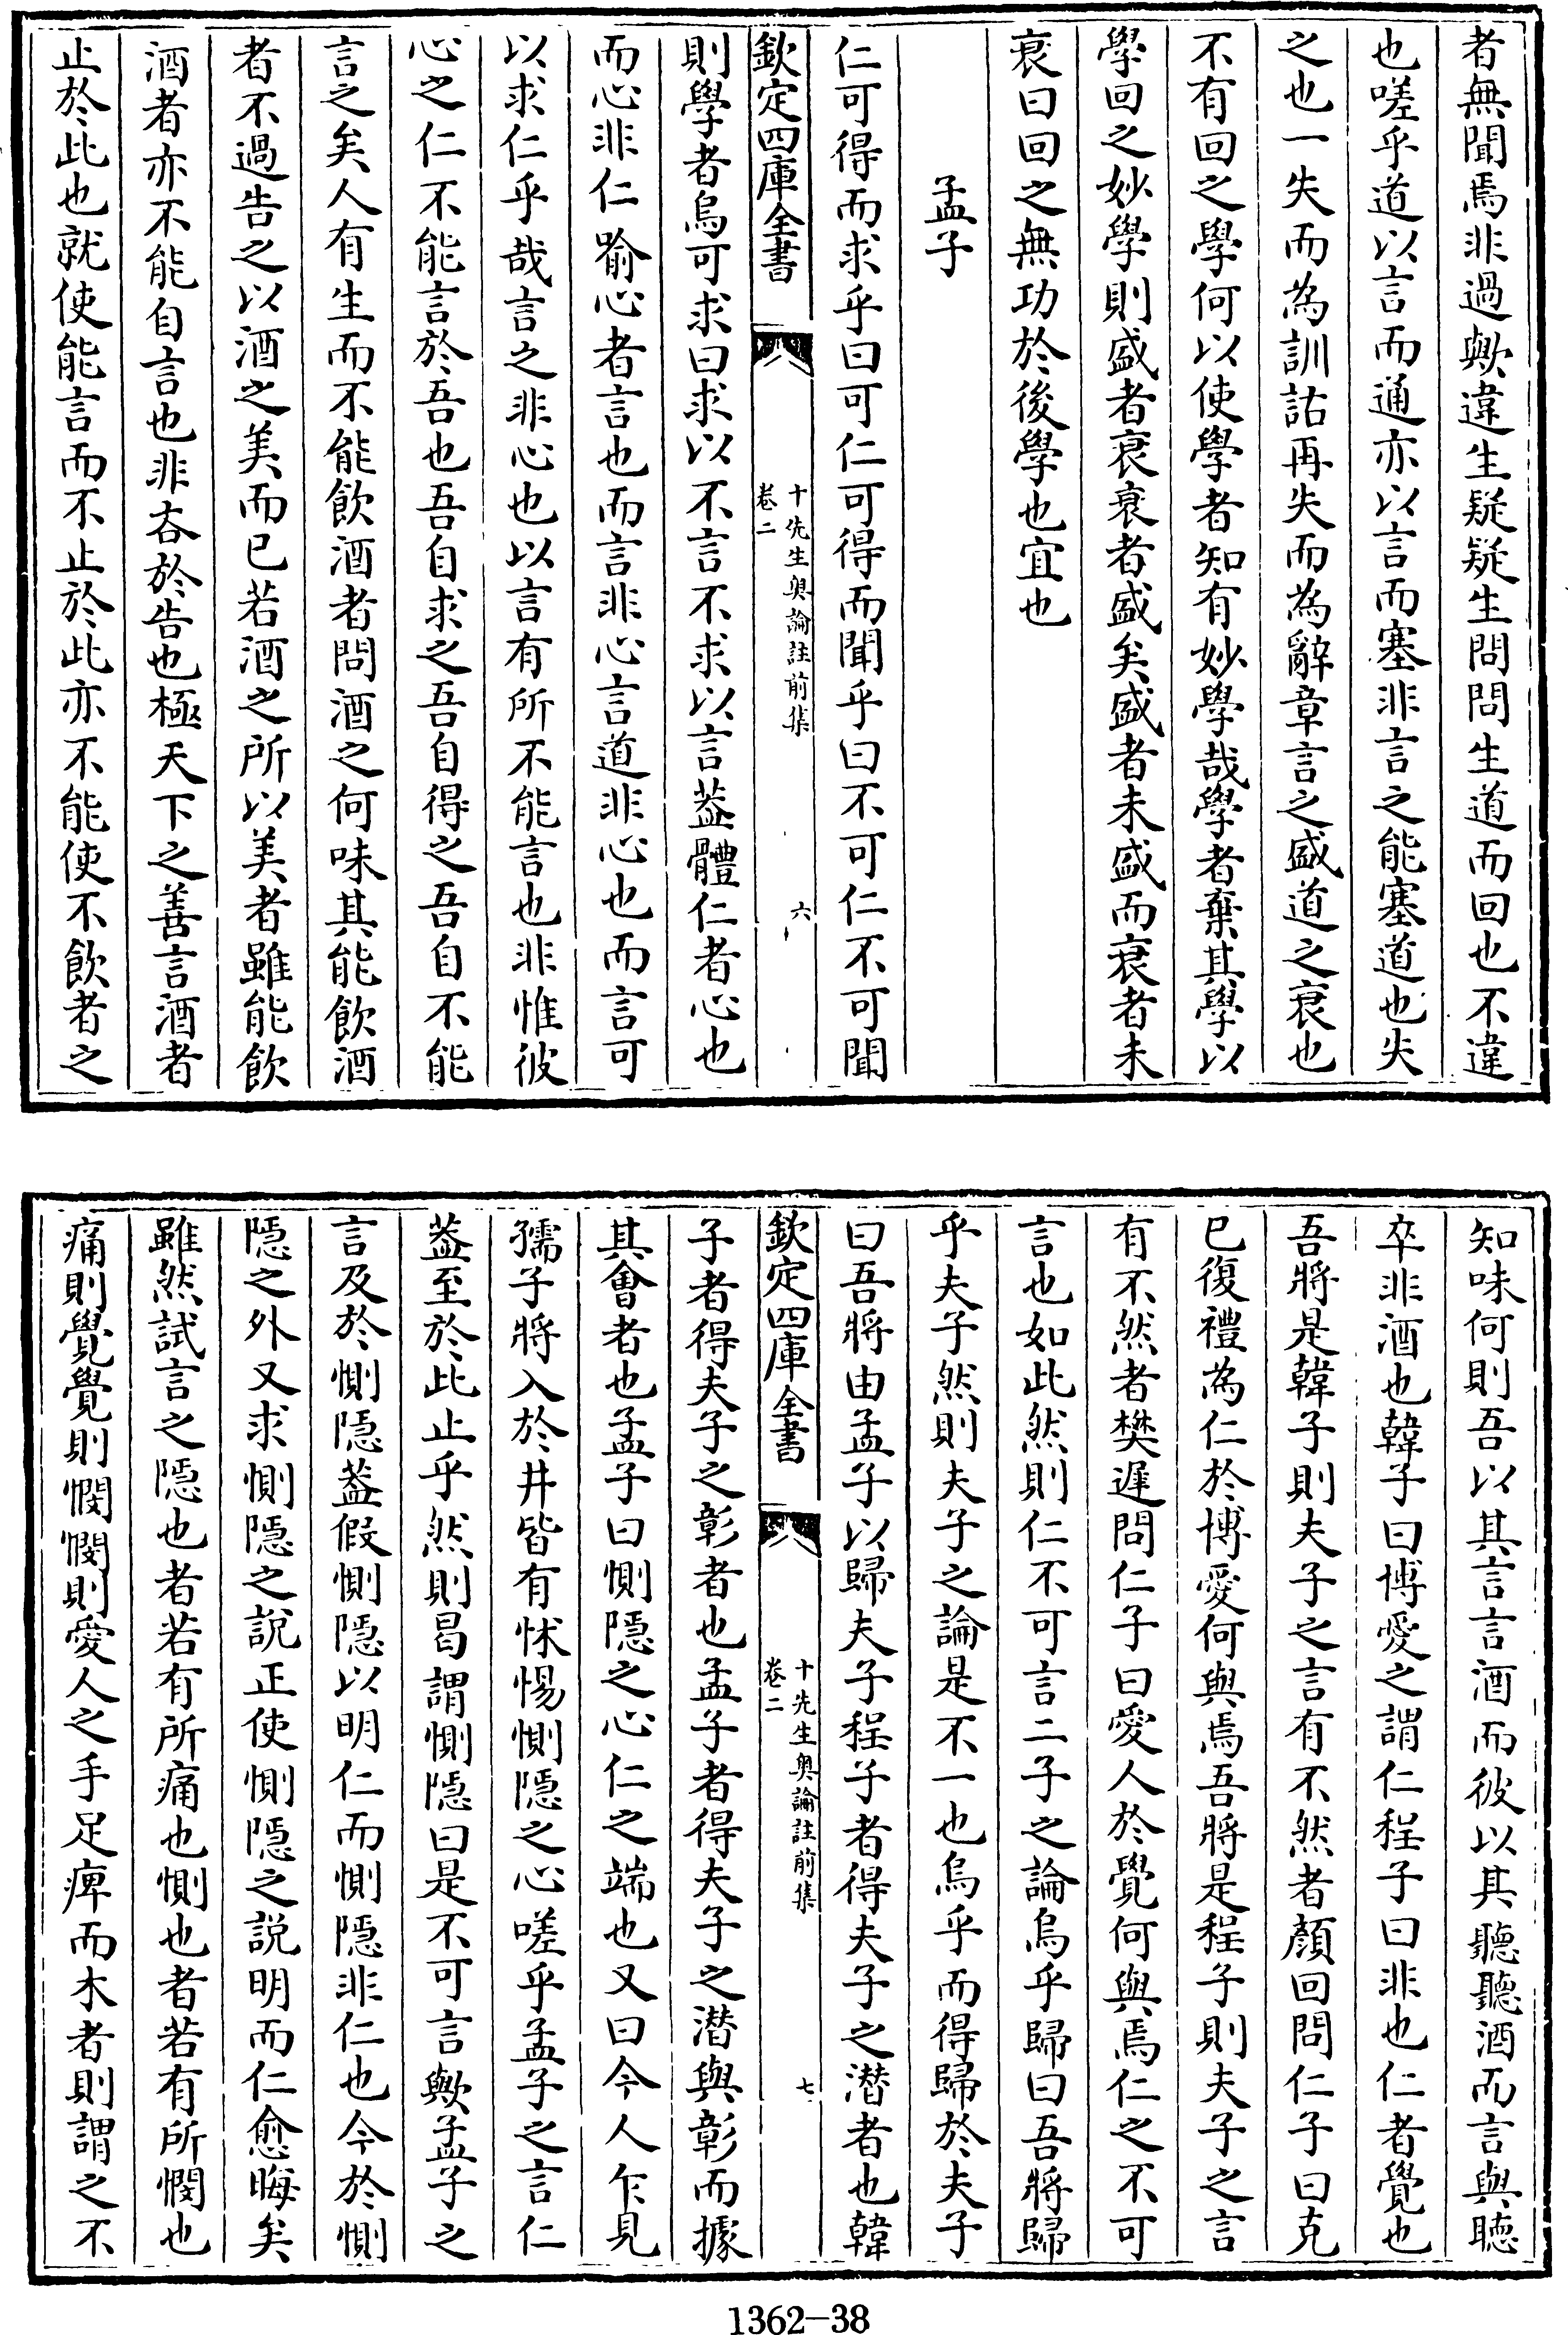 者無聞焉非過歟違生疑疑生問問生道而回也不違
也嗟乎道以言而通亦以言而塞非言之能塞道也失
之也一失而為訓詁再失而為辭章言之盛道之衰也
不有回之學何以使學者知有妙學哉學者棄其學以
學回之妙學則盛者衰衰者盛矣盛者未盛而衰者未
衰曰回之無功於後學也宜也
孟子
仁可得而求乎曰可仁可得而聞乎曰不可仁不可聞
欽定四庫全書
十先生奥論註前集
卷二
六
則學者烏可求曰求以不言不求以言葢體仁者心也
而心非仁喻心者言也而言非心言道非心也而言可
以求仁乎哉言之非心也以言有所不能言也非惟彼
心之仁不能言於吾也吾自求之吾自得之吾自不能
言之矣人有生而不能飲酒者問酒之何味其能飲酒
者不過告之以酒之美而已若酒之所以美者雖能飲
酒者亦不能自言也非吝於告也極天下之善言酒者
止於此也就使能言而不止於此亦不能使不飲者之
知味何則吾以其言言酒而彼以其聽聽酒而言與聴
卒非酒也韓子曰博愛之謂仁程子曰非也仁者覺也
吾將是韓子則夫子之言有不然者顏回問仁子曰克
已復禮為仁於博愛何與焉吾將是程子則夫子之言
有不然者樊遲問仁子曰愛人於覺何與焉仁之不可
言也如此然則仁不可言二子之論烏乎歸曰吾將歸
乎夫子然則夫子之論是不一也烏乎而得歸於夫子
曰吾將由孟子以歸夫子程子者得夫子之潜者也韓
欽定四庫全書
十先生奥論註前集
卷二
七
子者得夫子之彰者也孟子者得夫子之潜與彰而據
其會者也孟子曰惻隠之心仁之端也又曰今人乍見
孺子將入於井皆有怵惕惻隠之心嗟乎孟子之言仁
葢至於此止乎然則曷謂惻隠曰是不可言歟孟子之
言及於惻隠葢假惻隠以明仁而惻隠非仁也今於惻
隠之外又求惻隠之說正使惻隠之説明而仁愈晦矣
雖然試言之隠也者若有所痛也惻也者若有所憫也
痛則覺覺則憫憫則愛人之手足痺而木者則謂之不
1362-38